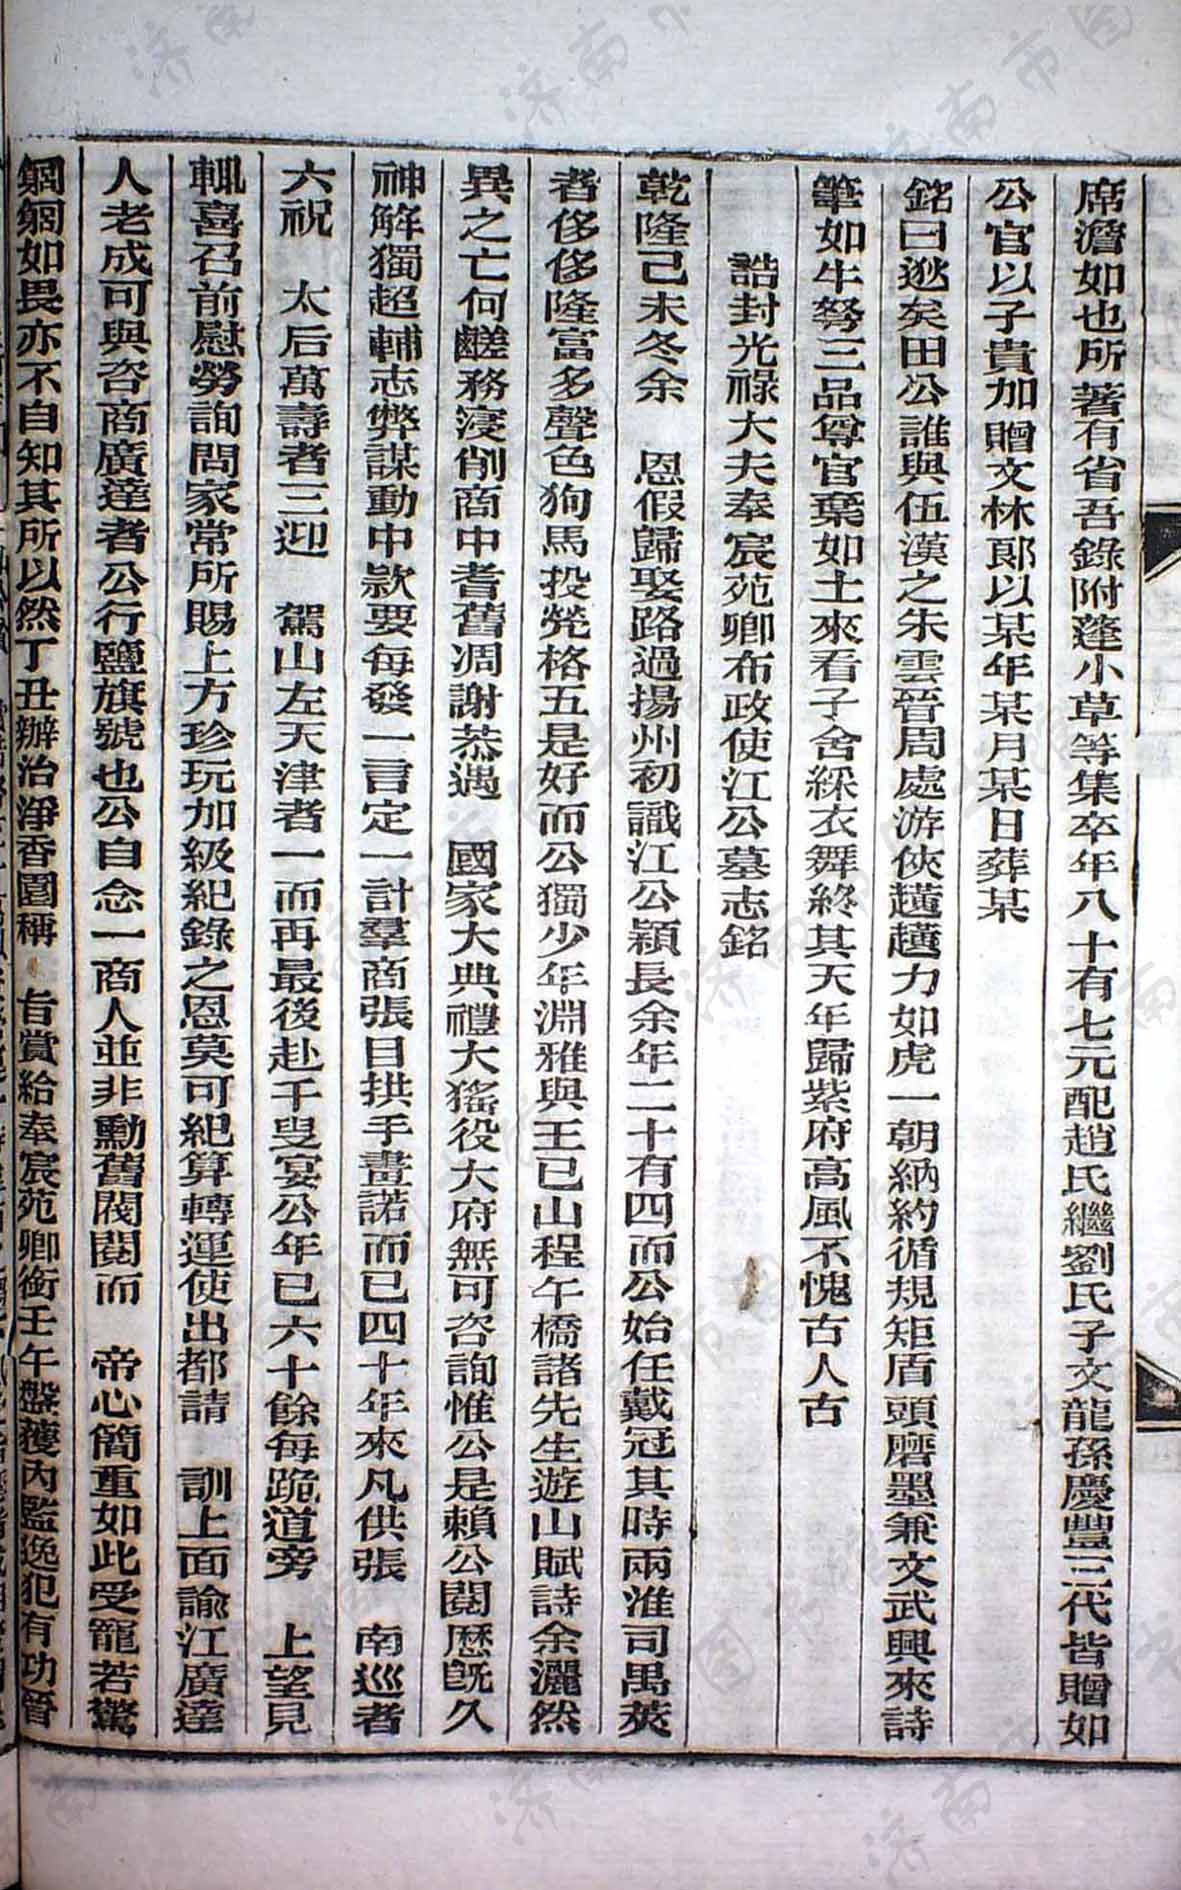 席澹如也所著有省吾錄附蓬小草等集卒年八十有七元配趙氏繼劉氏子文龍孫慶豐三代皆贈如
公官以子貴加贈文林郎以某年某月某日葬某
銘曰逖矣田公誰與伍漢之朱雲晉周處游俠趫趫力如虎一朝納約循規矩盾頭磨墨兼文武興來詩
筆如牛弩三品尊官棄如土來看子舍綵衣舞終其天年歸紫府高風不愧古人古
誥封光祿大夫奉宸苑卿布政使江公墓志銘
乾隆己未冬余 恩假歸娶路過揚州初識江公穎長余年二十有四而公始任戴冠其時兩淮司禺莢
者侈侈隆富多聲色狗馬投焭格五是好而公獨少年淵雅與王已山程午橋諸先生遊山賦詩余灑然
異之亡何鹺務寖削商中耆舊凋謝恭遇 國家大典禮大猺役大府無可咨詢惟公是賴公閱歷旣久
神解獨超輔志弊謀動中款要每發一言定一計羣商張目拱手畫諾而已四十年來凡供張 南巡者
六祝 太后萬壽者三迎 駕山左天津者一而再最後赴千叟宴公年已六十餘每跪道旁 上望見
輒喜召前慰勞詢問家常所賜上方珍玩加級紀錄之恩莫可紀算轉運使出都請 訓上面諭江廣達
人老成可與咨商廣達者公行鹽旗號也公自念一商人並非勳舊閥閱而 帝心簡重如此受寵若驚
匔匔如畏亦不自知其所以然丁丑辦治淨香園稱 旨賞給奉宸苑卿銜壬午盤獲內監逸犯有功晉
济南市图书馆